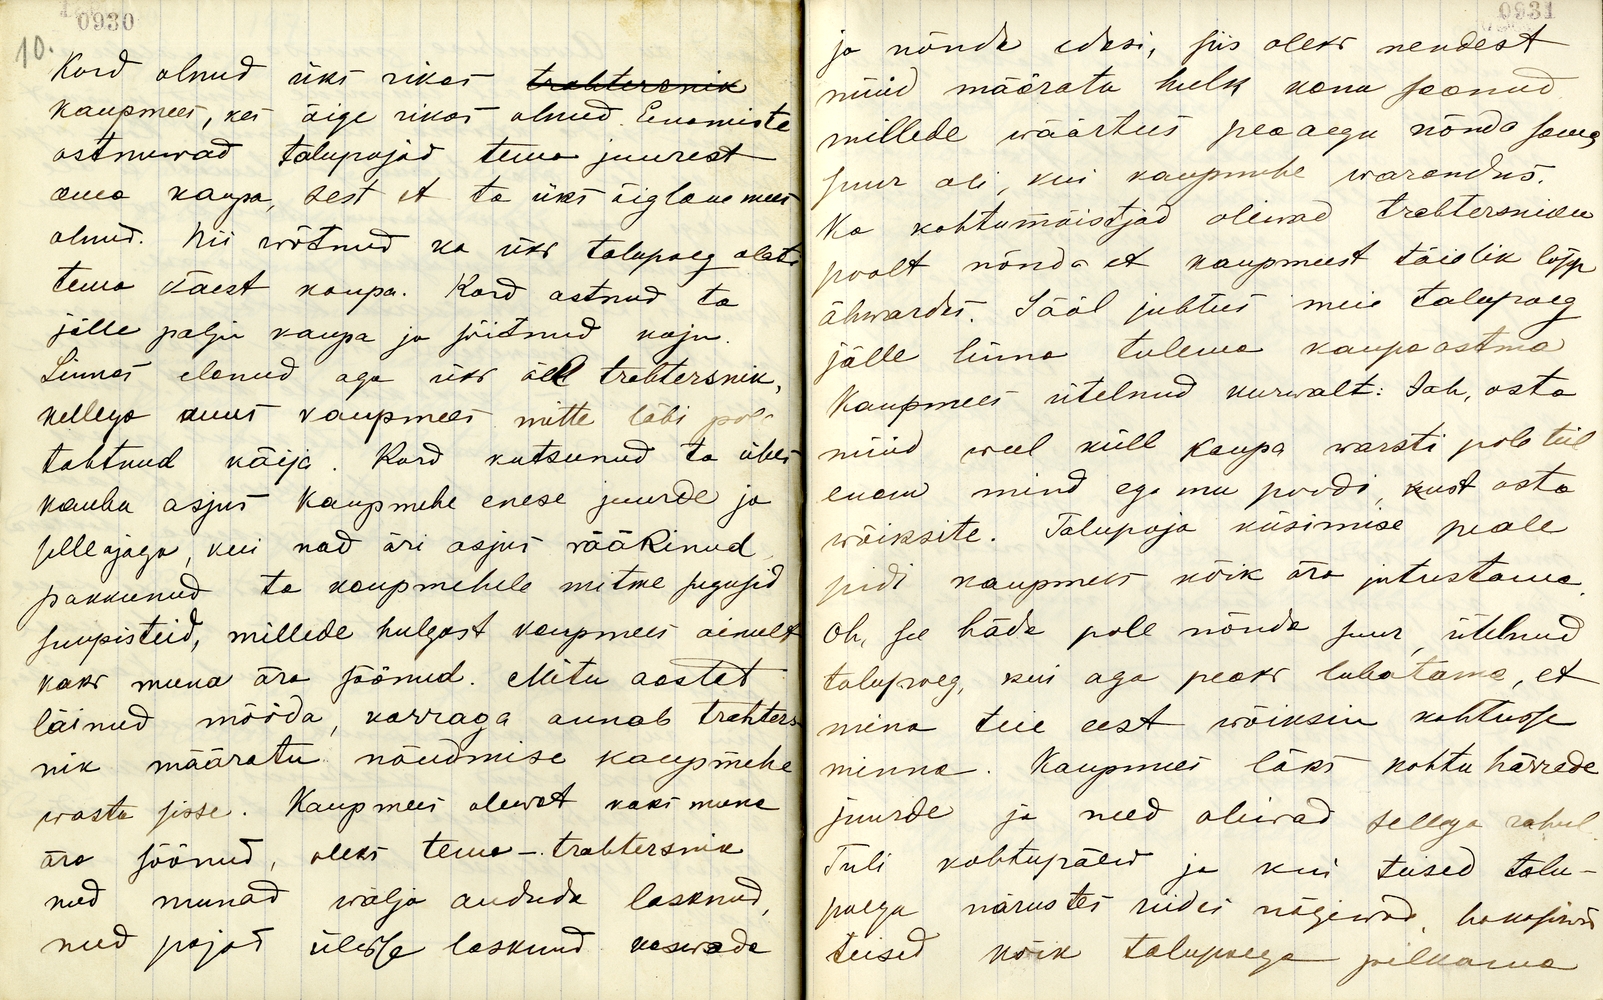 0930
10.
Kord olnud üks rikas trahtersnik
kaupmees, kes õige rikas olnud. Enamiste
ostnuwad talupojad tema juurest
oma kaupa, sest et ta üks õiglane mees
olnud. Nii wõtnud ka üks talupoeg alati
tema käest kaupa. Kord ostnud ta
jälle palju kaupa ja sõitnud koju.
Linnas elanud aga üks äll trahtersnik,
kellega muus kaupmees mitte läbi pole
tahtnud käija. Kord kutsunud ta ühes
kauba asjus kaupmehe enese juurde ja
selleajaga, kui nad äri asjus rääkinud
pakkunud ta kaupmehele mitme sugusid
suupisteid, millede hulgast kaupmees ainult
kaks muna ära söönud. Mitu aastat
läinud mööda, korraga annab trahters
nik määratu nõudmise kaupmehe
wastu sisse. Kaupmees olewat kaks muna
ära söönud, oleks tema - trahtersnik
need munad wälja aududa lasknud,
need pojad ülesse lasknud kaswada
0931
ja nõnda edasi, siis oleks nendest
nüüd määratu hulk kanu saanud
millede wäärtus peaaegu nõnda sama
suur oli, kui kaupmehe warandus.
Ka kohtumõistjad oliwad trahtersniku
poolt nõnda et kaupmeest täielik lõpp
ähwardas. Sääl juhtus meie talupoeg
jälle linna tulema kaupa ostma
Kaupmees ütelnud kurwalt: Jah, osta
nüüd weel küll kaupa warsti pole teil
enam mind ega mu poodi, kust osta
wõiksite. Talupoja küsimise peale
pidi kaupmees kõik ära jutustama.
Oh, see häda pole nõnda suur, ütelnud
talupoeg, kui aga peaks lubatama, et
mina teie eest wõiksin kohtusse
minna. Kaupmees läks kohtu härrade
juurde ja need oliwad sellega rahul.
Tuli kohtupäew ja kui teised talu-
poega närustes riides nägiwad, hakasiwad
teised kõik talupoega pilkama